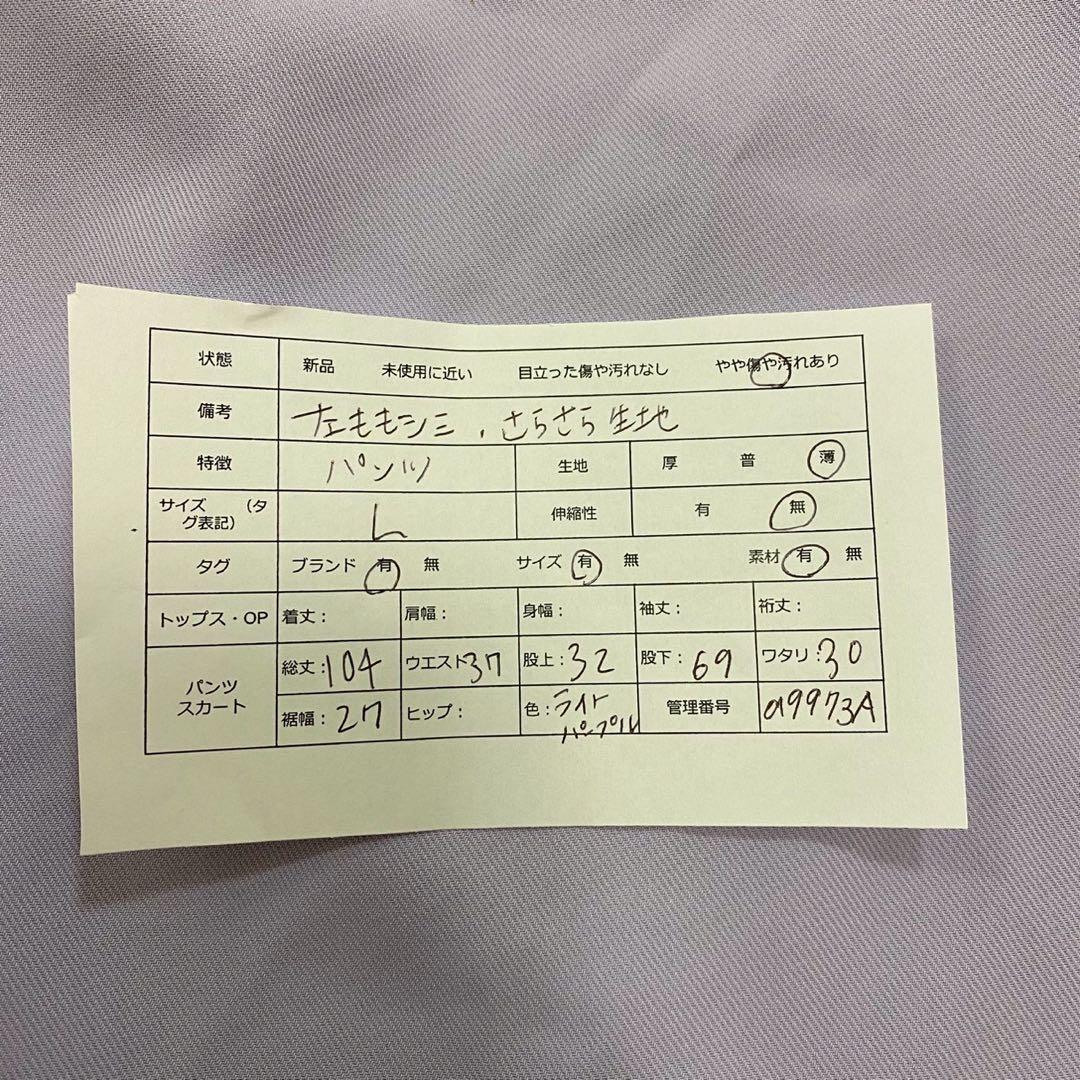 状態 新品 未使用に近い 目立った傷や汚れなし やや傷や汚れあり
備考 左ももシミ、さらさら生地
特徴 パンツ 生地 厚 普 薄
サイズ (タグ表記) L 伸縮性 有 無
タグ ブランド 有 無 サイズ 有 無 素材 有 無
トップス・OP 着丈: 肩幅: 身幅: 袖丈: 裄丈:
パンツ スカート 総丈:104 ウエスト37 股上:32 股下:69 ワタリ:30
裾幅:27 ヒップ: 色:ライトパープル 管理番号 a9973A